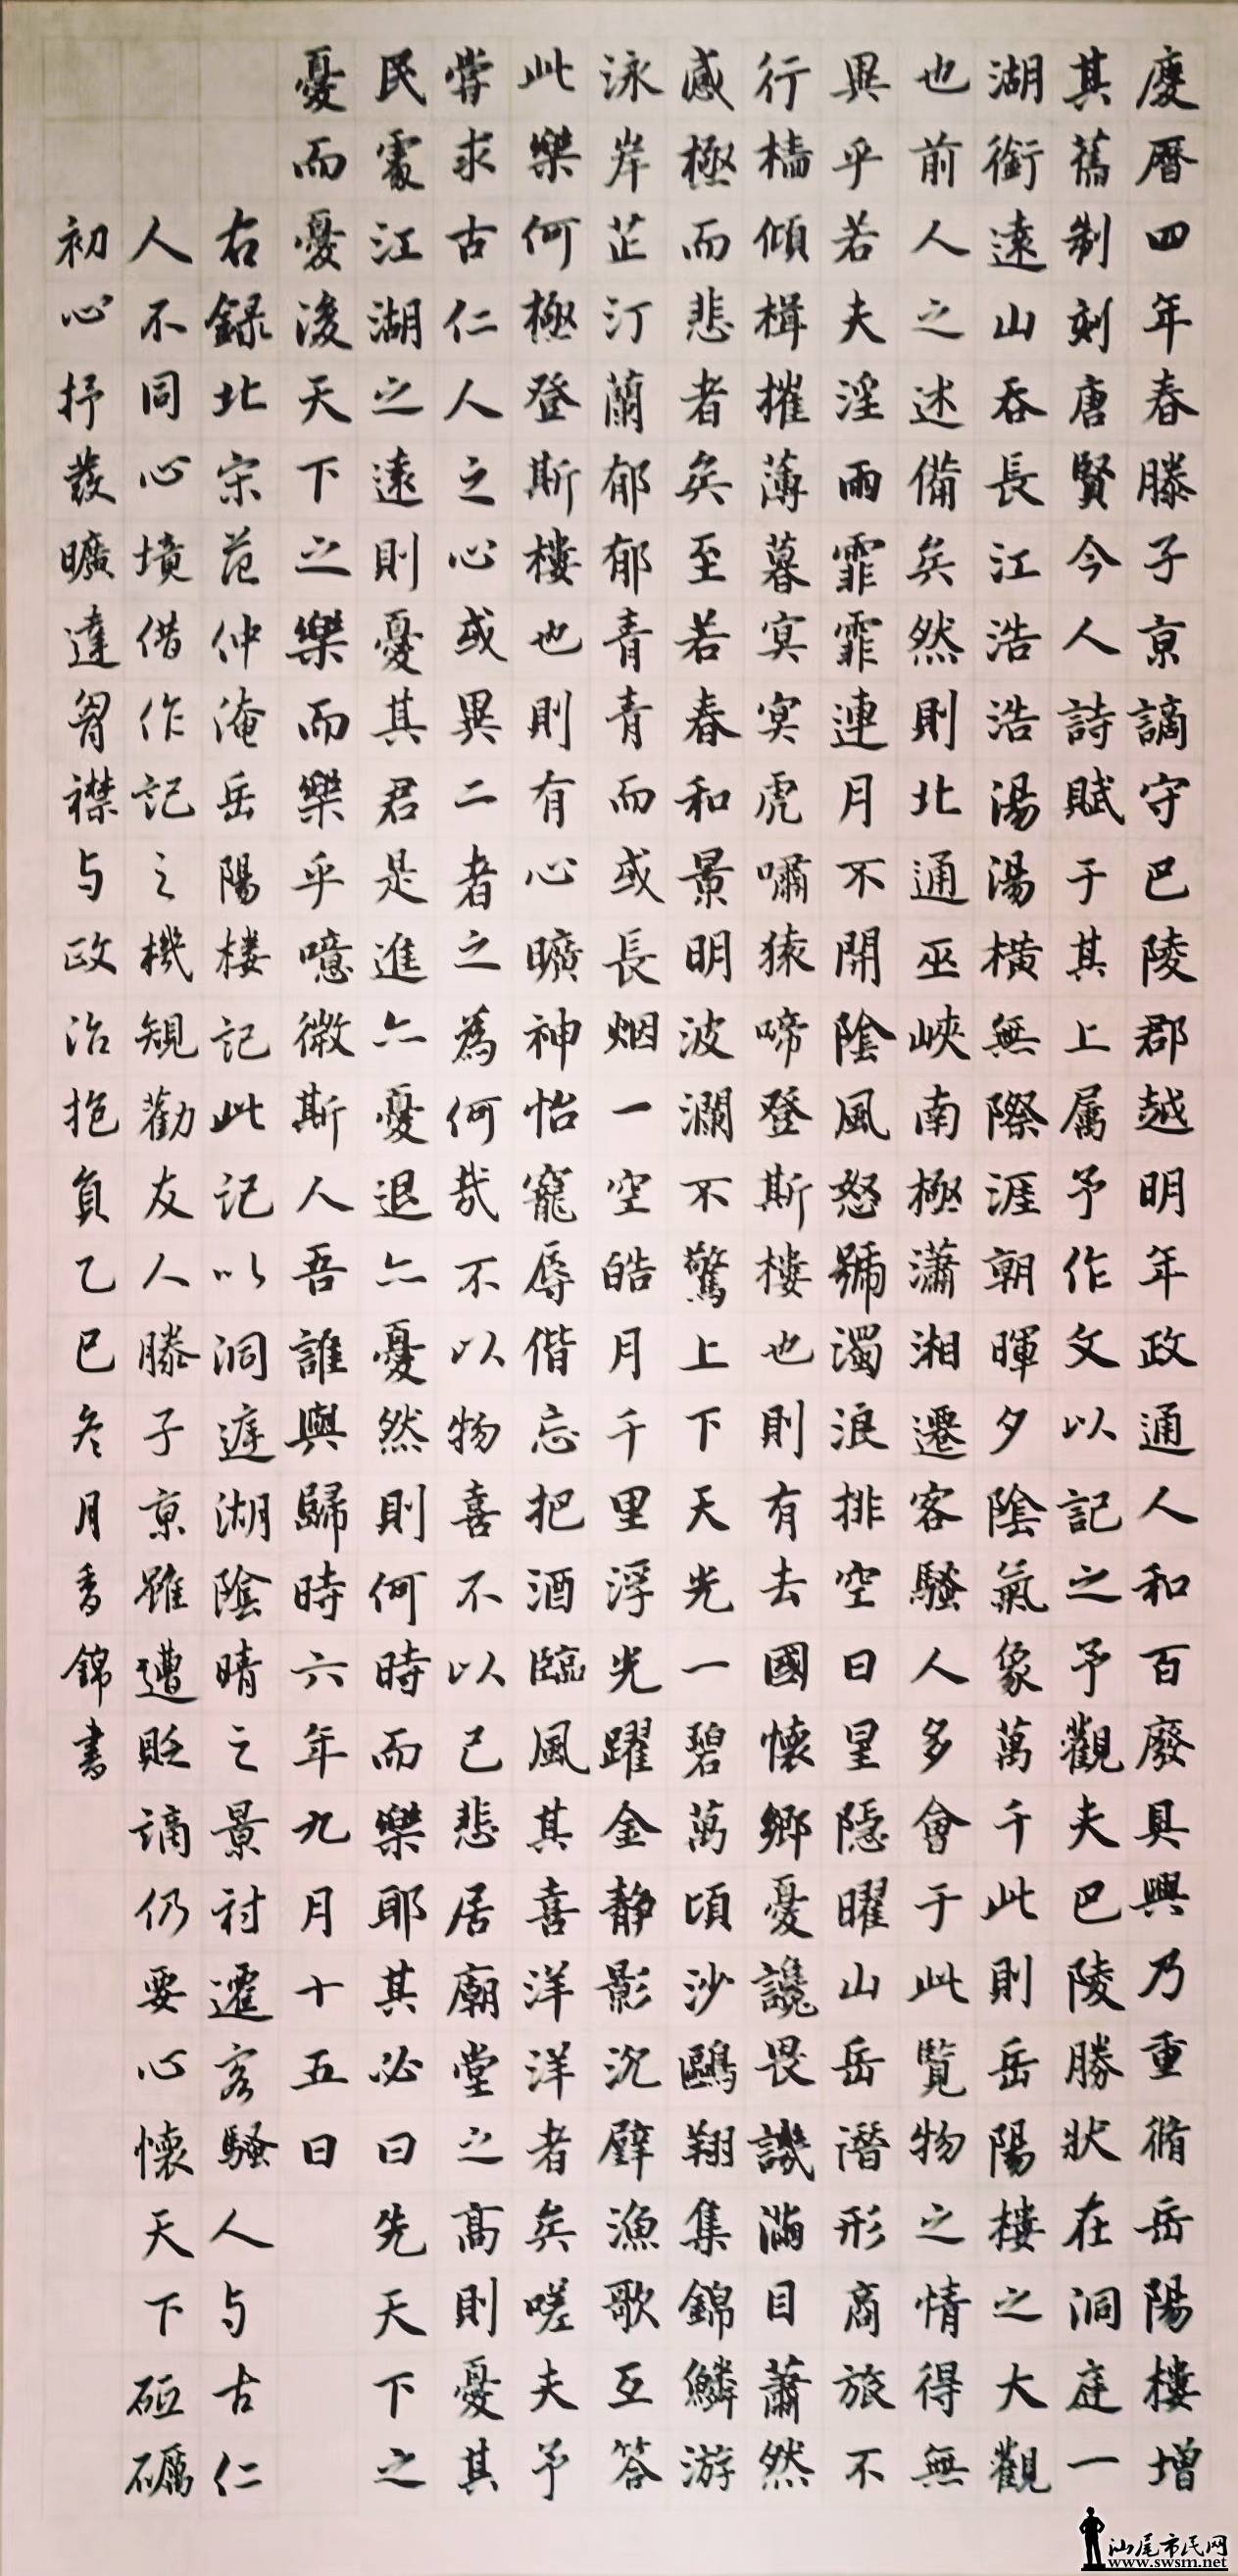 慶曆四年春滕子京謫守巴陵郡越明年政通人和百廢具興乃重脩岳陽樓增
其舊制刻唐賢今人詩賦于其上属予作文以記之予觀夫巴陵勝狀在洞庭一
湖銜遠山吞長江浩浩湯湯橫無際涯朝暉夕陰氣象萬千此則岳陽樓之大觀
也前人之述備矣然則北通巫峽南極瀟湘遷客騷人多會于此覽物之情得無
異乎若夫淫雨霏霏連月不開陰風怒號濁浪排空日星隱曜山岳潛形商旅不
行檣傾楫摧薄暮冥冥虎嘯猿啼登斯樓也則有去國懷鄉憂讒畏譏滿目蕭然
感極而悲者矣至若春和景明波瀾不驚上下天光一碧萬頃沙鷗翔集錦鱗游
泳岸芷汀蘭郁郁青青而或長烟一空皓月千里浮光躍金静影沉璧漁歌互答
此樂何極登斯樓也則有心曠神怡寵辱偕忘把酒臨風其喜洋洋者矣嗟夫予
嘗求古仁人之心或異二者之為何哉不以物喜不以己悲居廟堂之高則憂其
民處江湖之遠則憂其君是進亦憂退亦憂然則何時而樂耶其必曰先天下之
憂而憂後天下之樂而樂乎噫微斯人吾誰與歸時六年九月十五日
右錄北宋范仲淹岳陽楼記此記以洞庭湖陰晴之景討遷客騷人与古仁
人不同心境借作記之機規勸友人滕子京雖遭貶謫仍要心懷天下砥礪
初心抒發曠達胷襟与政治抱負乙巳冬月香錦書
汕尾市民网
www.swsm.net